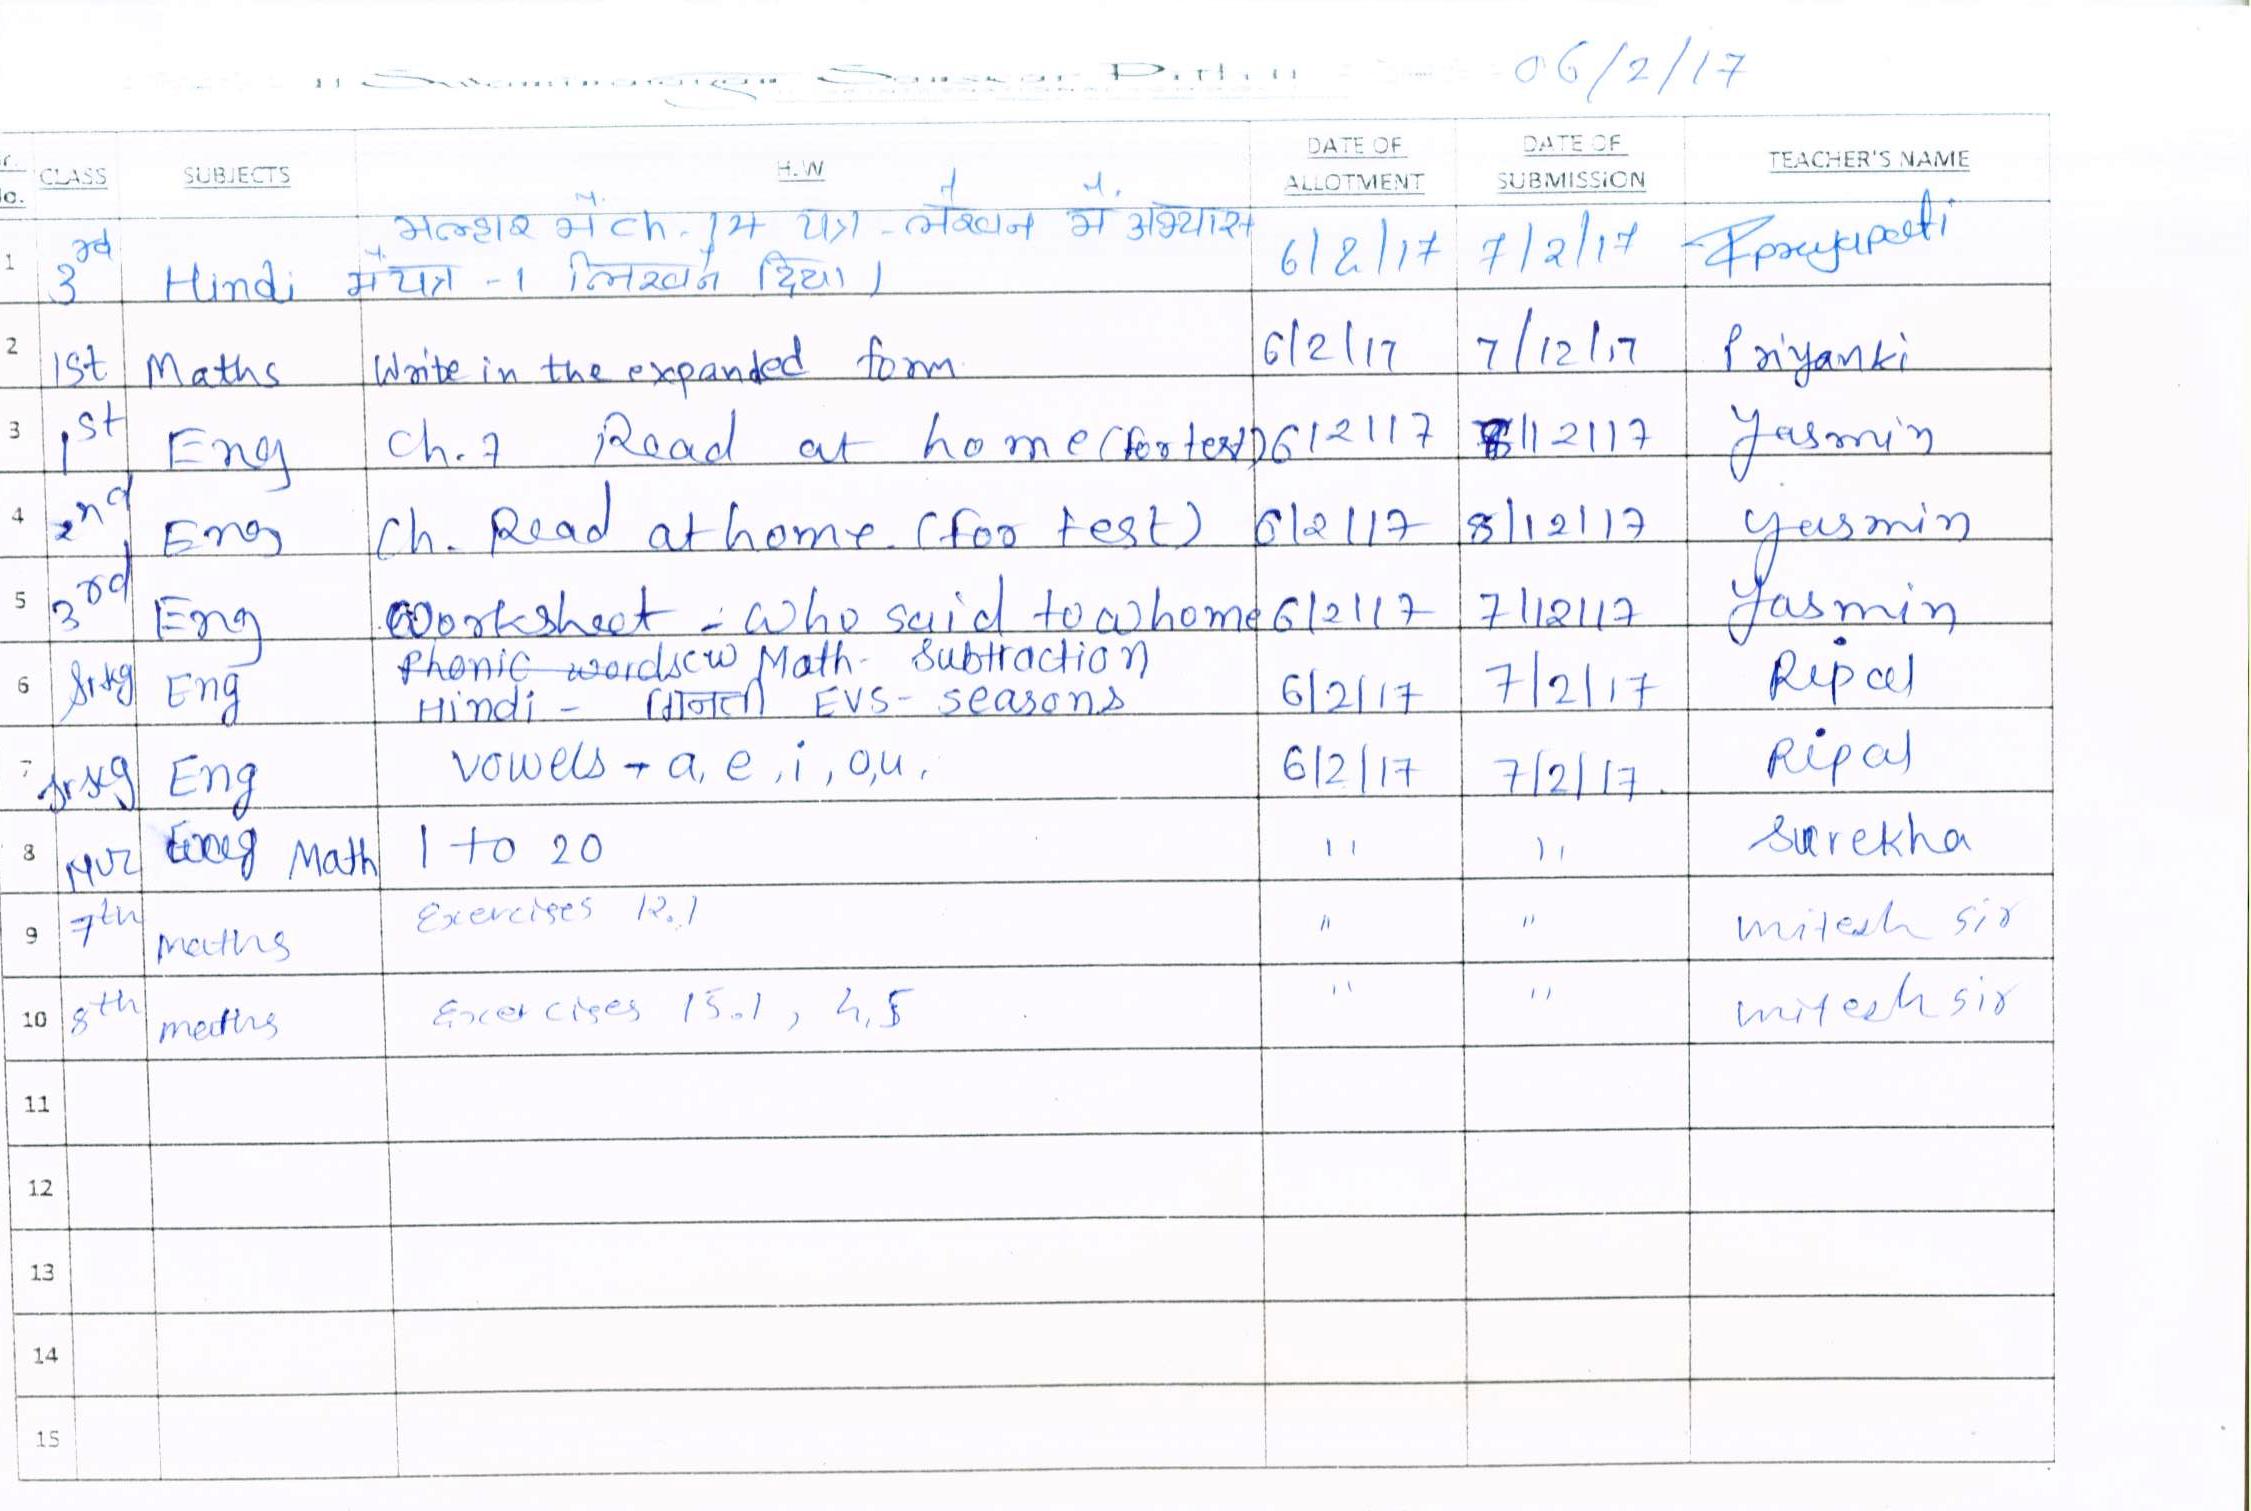 06/2/17
CLASS SUBJECTS H.W DATE OF ALLOTMENT DATE OF SUBMISSION TEACHER'S NAME
1 3rd Hindi मल्हार में ch. 14 पत्र-लेखन में अभ्यास 6/2/17 7/2/17 prajapati
में पत्र -1 लिखने दिया।
2 1st Maths Write in the expanded form 6/2/17 7/12/17 Priyanki
3 1st Eng Ch. 7 Read at home (for test) 6/2/17 8/12/17 Yasmin
4 2nd Eng Ch. Read at home. (for test) 6/2/17 8/12/17 Yasmin
5 3rd Eng Worksheet - Who said to whome 6/2/17 7/12/17 Yasmin
6 Sr.kg Eng Phonic words cw Math - Subtraction 6/2/17 7/2/17 Ripal
Hindi - गिनती EVS - seasons
7 Jr.kg Eng vowels → a, e, i, o, u. 6/2/17 7/2/17. Ripal
8 Nur Math 1 to 20 " " Surekha
9 7th maths Exercises 12.1 " " mitesh sir
10 8th maths Exercises 15.1, 4,5 " " mitesh sir
11
12
13
14
15